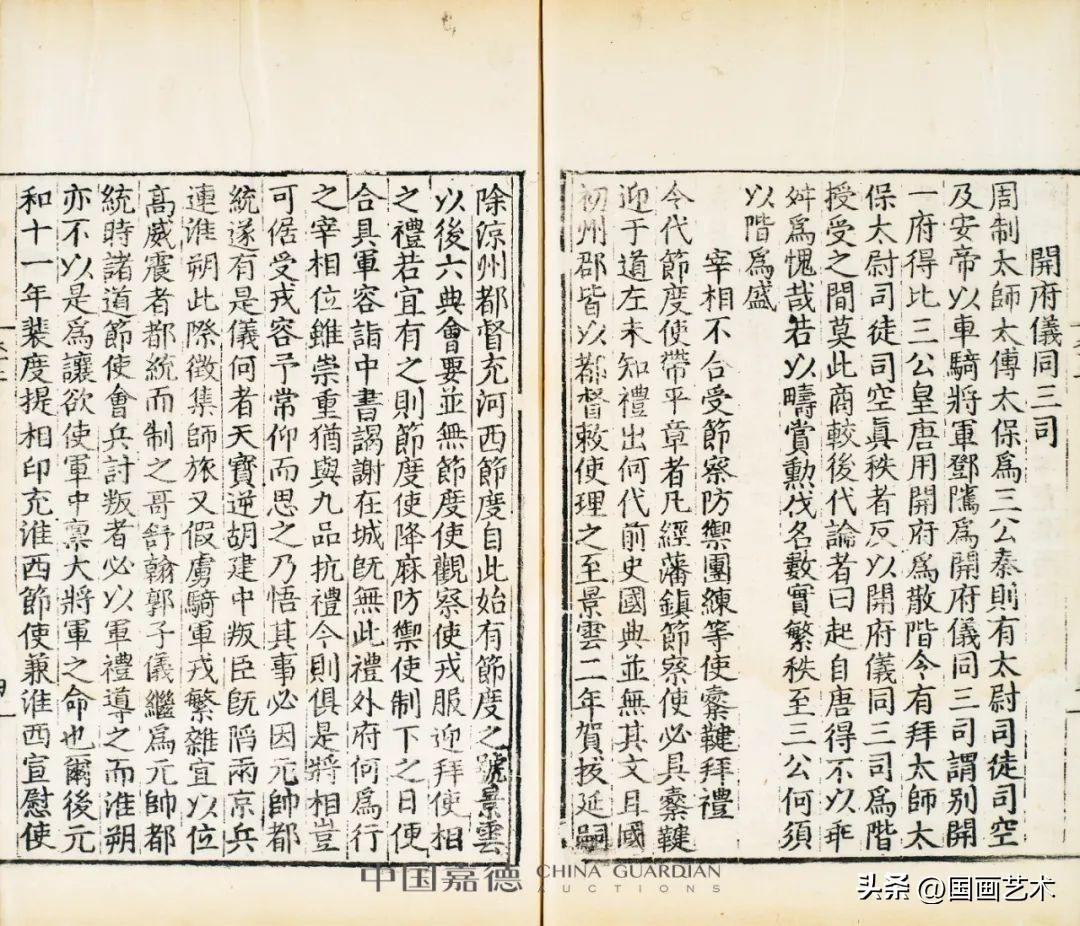 開府儀同三司
周制太師太傅太保爲三公秦則有太尉司徒司空
及安帝以車騎將軍鄧騭爲開府儀同三司謂別開
一府得比三公皇唐用開府爲散階今有拜太師太
保太尉司徒司空眞秩者反以開府儀同三司爲階
授受之間莫此商較後代論者曰起自唐得不以乖
舛爲愧哉若以疇賞勲伐名數實繁秩至三公何須
以階爲盛
宰相不合受節察防禦團練等使櫜鞬拜禮
今代節度使帶平章者凡經藩鎮節察使必具櫜鞬
迎于道左未知禮出何代前史國典並無其文且國
初州郡皆以都督敕使理之至景雲二年賀拔延嗣
除涼州都督充河西節度自此始有節度之號景雲
以後六典會要並無節度使觀察使戎服迎拜使相
之禮若宜有之則節度使降麻防禦使制下之日便
合具軍容詣中書謁謝在城旣無此禮外府何爲行
之宰相位雖崇重猶與九品抗禮今則俱是將相豈
可倨受戎容予常仰而思之乃悟其事必因元帥都
統遂有是儀何者天寶逆胡建中叛臣旣陷兩京兵
連淮朔此際徵集師旅又假虜騎軍戎繁雜宜以位
高威震者都統而制之哥舒翰郭子儀繼爲元帥都
統時諸道節使會兵討叛者必以軍禮導之而淮朔
亦不以是爲讓欲使軍中禀大將軍之命也爾後元
和十一年裴度提相印充淮西節使兼淮西宣慰使
中国嘉德 CHINA GUARDIAN
AUCTIONS
头条 @国画艺术